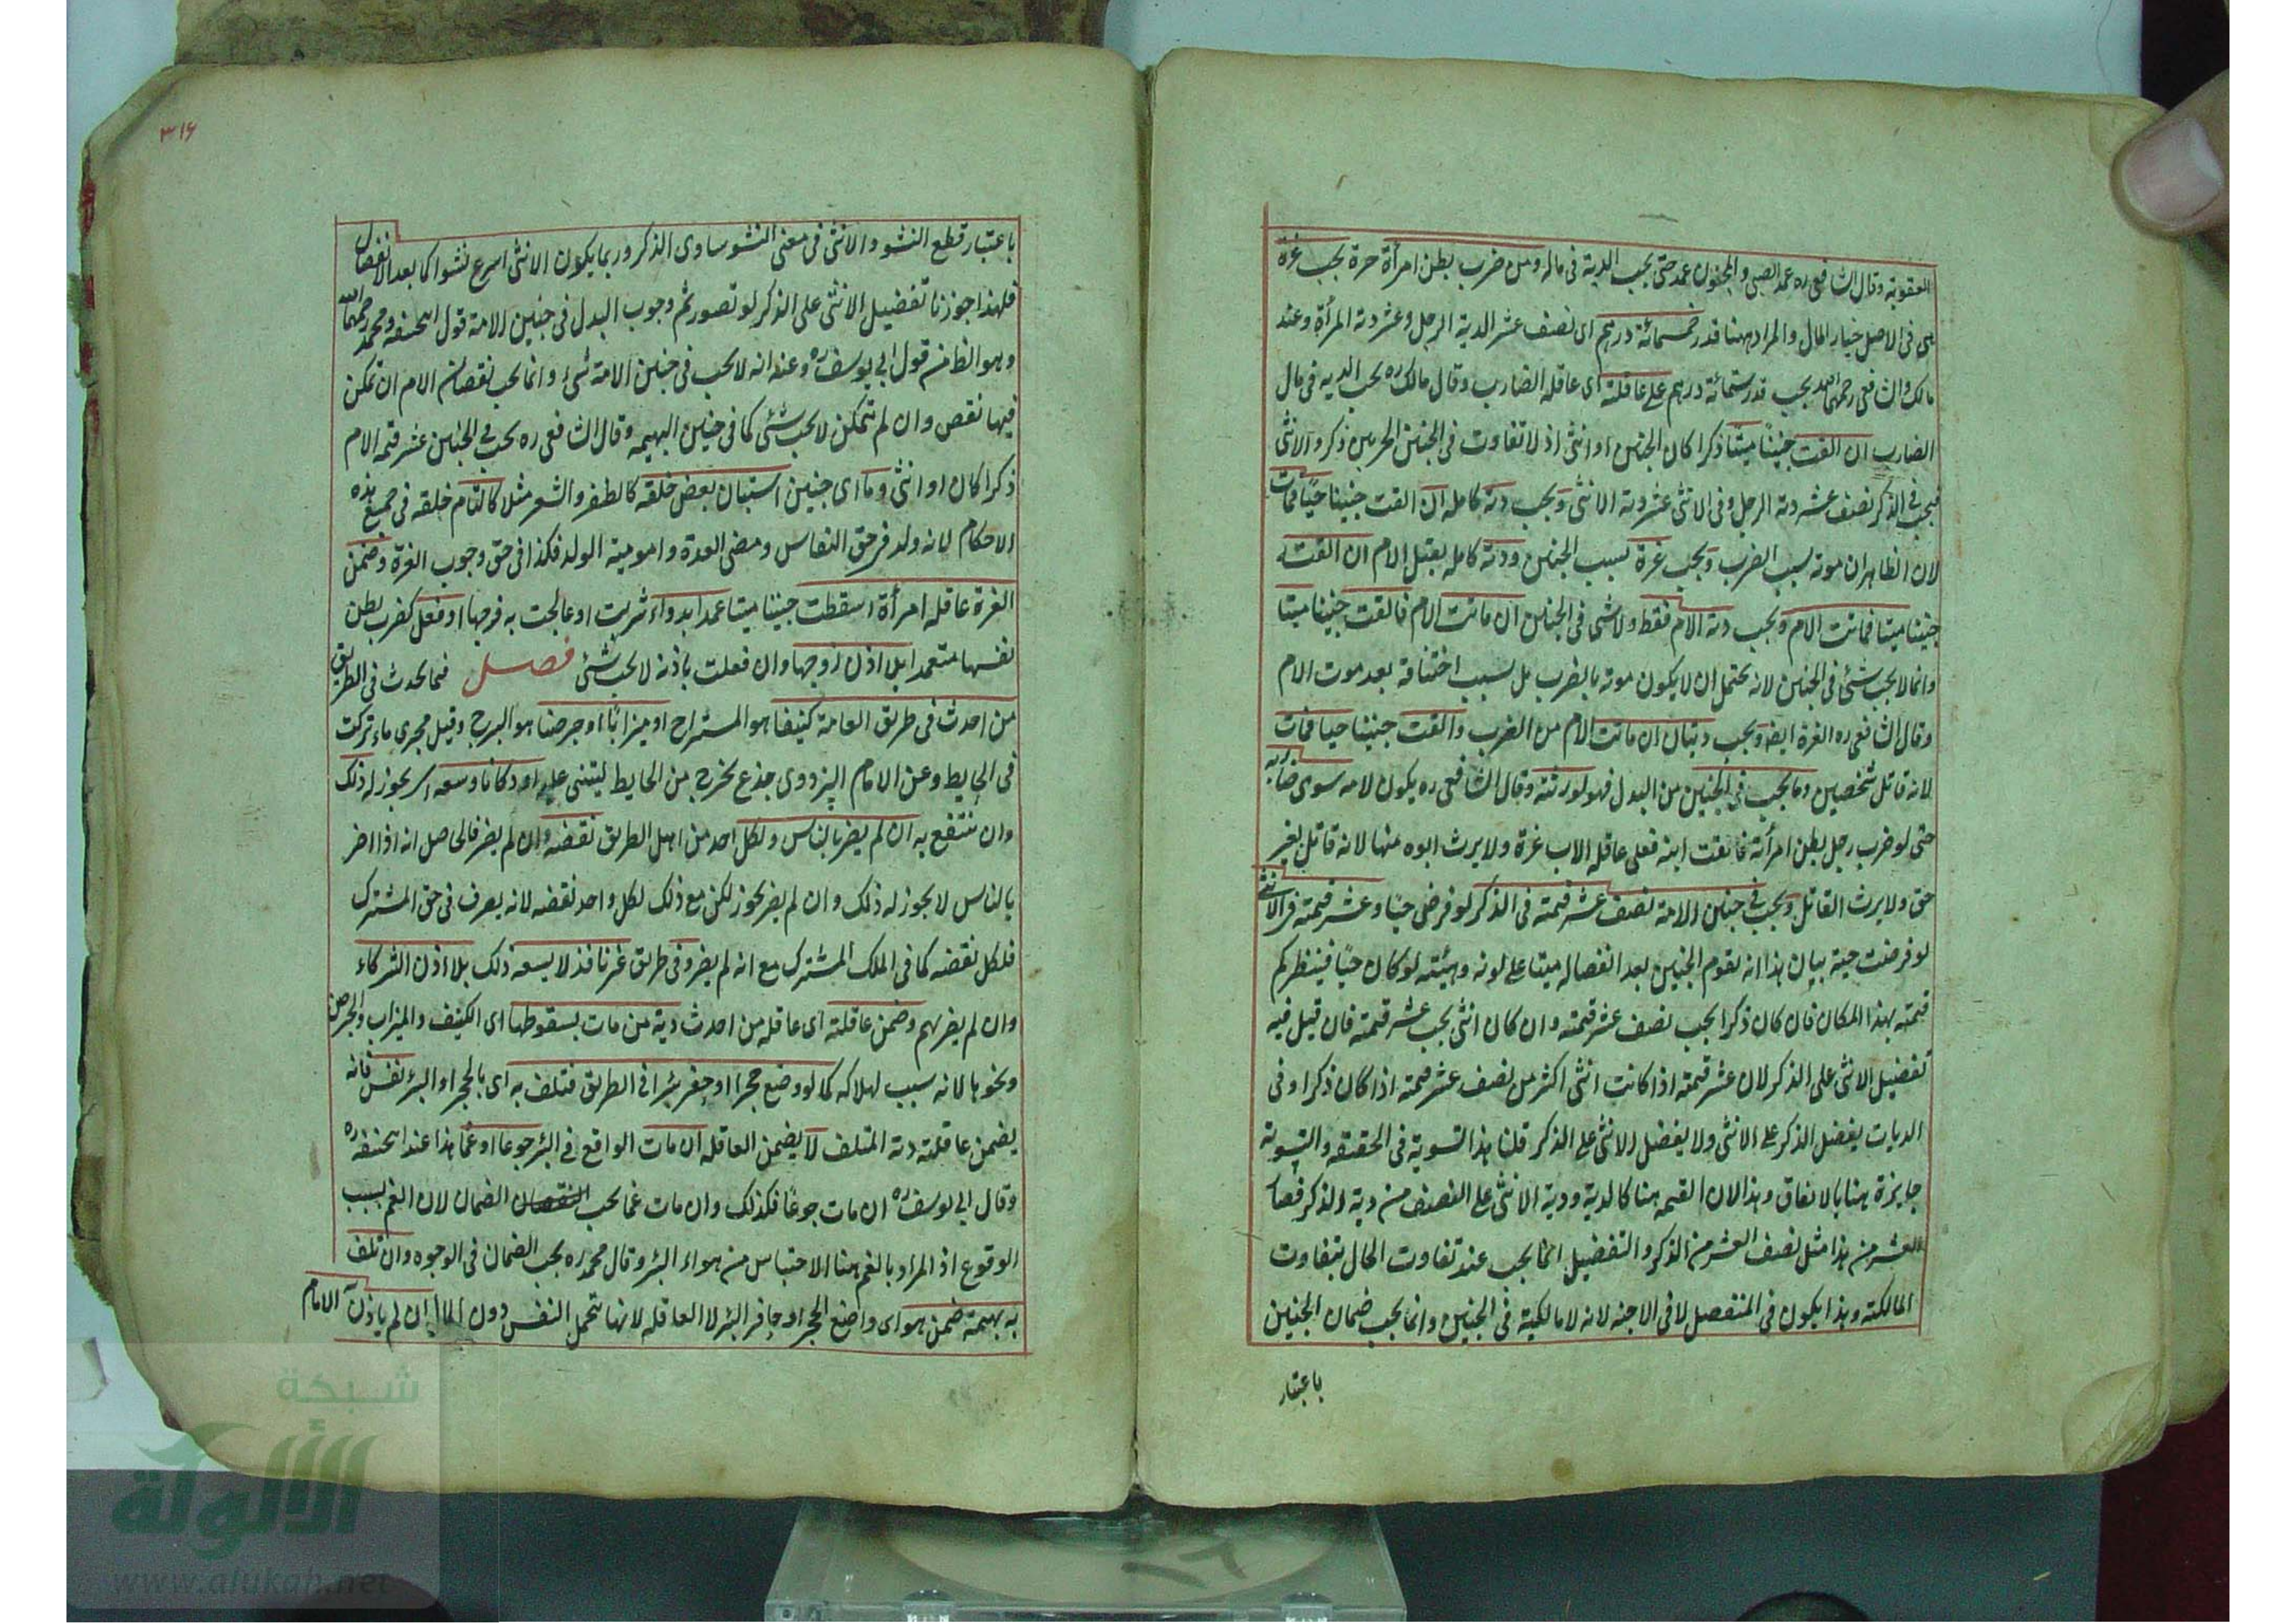 العقوبة وقال الشافعى ره عمد الصبى والمجنون عمد حتى يجب الدية فى ماله ومن ضرب بطن امرأة حرة يجب غرة
هى فى الاصل خيار المال والمراد ههنا قدر خمسمائة درهم اى نصف عشر الدية الرجل وعشر دية المرأة وعند
مالك والشافعى رحمهما الله يجب قدر ستمائة درهم على عاقلته اى عاقلة الضارب وقال مالك ره يجب الدية فى مال
الضارب ان القت جنينا ميتا ذكرا كان الجنين او انثى اذ لا تفاوت فى الجنين الحر بين ذكر والانثى
فيجب فى الذكر نصف عشر دية الرجل وفى الانثى عشر دية الانثى ويجب دية كاملة ان القت جنينا حيا فمات
لان الظاهر ان موته بسبب الضرب ويجب غرة بسبب الجنين ودية كاملة بقتل الام ان القت
جنينا ميتا فماتت الام ويجب دية الام فقط ولا شى فى الجنين ان ماتت الام فالقت جنينا ميتا
وانما لا يجب شئ فى الجنين لانه يحتمل ان لا يكون موته بالضرب بل بسبب اختناقه بعد موت الام
وقال الشافعى ره الغرة ايضا ويجب ديتان ان ماتت الام من الضرب والقت جنينا حيا فمات
لانه قاتل شخصين وما يجب فى الجنين من البدل فهو لورثته وقال الشافعى ره يكون لامه سوى ضاربه
حتى لو ضرب رجل بطن امرأته فالقت ابنه فعلى عاقلة الاب غرة ولا يرث ابوه منها لانه قاتل بغير
حق ولا يرث القاتل ويجب فى جنين الامة نصف عشر قيمته فى الذكر لو فرض حيا وعشر قيمته فى الانثى
لو فرضت حية بيان هذا انه يقوم الجنين بعد انفصاله ميتا على لونه وهيئته لو كان حيا فينظر كم
قيمته بهذا المكان فان كان ذكرا يجب نصف عشر قيمته وان كان انثى يجب عشر قيمته فان قيل فيه
تفضيل الانثى على الذكر لان عشر قيمته اذا كانت انثى اكثر من نصف عشر قيمته اذا كان ذكرا وفى
الديات يفضل الذكر على الانثى ولا يفضل الانثى على الذكر قلنا هذا التسوية فى الحقيقة والتسوية
جايزة هنا بالاتفاق وهذا لان القيمة هنا كالدية ودية الانثى على النصف من دية الذكر فصار
العشر من هذا مثل نصف العشر من الذكر والتفضيل انما يجب عند تفاوت الحال بتفاوت
المالكية وهذا يكون فى المنفصل لا فى الاجنة لانه لا مالكية فى الجنين وانما يجب ضمان الجنين
باعتبار
٣١٦
باعتبار قطع النشو والانثى فى معنى النشو ساوى الذكر وربما يكون الانثى اسرع نشوا كما بعد الانفصال
فلهذا جوزنا تفضيل الانثى على الذكر لو تصور ثم وجوب البدل فى جنين الامة قول ابيحنيفة ومحمد رحمهما الله
وهو الظ من قول ابي يوسف ره وعنه انه لا يجب فى جنين الامة شئ وانما يجب نقصان الام ان تمكن
فيها نقص وان لم يتمكن لا يجب شئ كما فى جنين البهيمة وقال الشافعى ره يجب فى الجنين عشر قيمة الام
ذكرا كان او انثى وما اى جنين استبان بعض خلقه كالظفر والشعر مثلا كالتام خلقه فى جميع هذه
الاحكام لانه ولد فى حق النفاس ومضى العدة وامومية الولد فكذا فى حق وجوب الغرة وضمن
الغرة عاقلة امرأة اسقطت جنينا ميتا عمدا بدواء شربت او عالجت به فرجها او فعل كضرب بطن
نفسها متعمدا بلا اذن زوجها وان فعلت باذنه لا يجب شئ فصل فيما يحدث فى الطريق
من احدث فى طريق العامة كنيفا هو المستراح او ميزابا او جرصنا هو البرج وقيل مجرى ماء تركت
فى الحايط وعن الامام البزدوى جذع يخرج من الحايط ليبنى عليه او دكانا وسعه اى يجوز له ذلك
وان ينتفع به ان لم يضر بالناس ولكل احد من اهل الطريق نقضه وان لم يضر فالحاصل انه اذا اضر
بالناس لا يجوز له ذلك وان لم يضر يجوز لكن مع ذلك لكل واحد نقضه لانه يصرف فى حق المشترك
فلكل نقضه كما فى الملك المشترك مع انه لم يضر وفى طريق غير نافذ لا يسعه ذلك بلا اذن الشركاء
وان لم يضر بهم وضمن عاقلته اى عاقلة من احدث دية من مات بسقوطها اى الكنيف والميزاب والجرصن
ونحوها لانه سبب لهلاكه كما لو وضع حجرا او حفر بئرا فى الطريق فتلف به اى بالحجر او البئر نفس فانه
يضمن عاقلته دية المتلف لا يضمن العاقلة ان مات الواقع فى البئر جوعا او غما هذا عند ابيحنيفة ره
وقال ابي يوسف ره ان مات جوعا فكذلك وان مات غما يجب النقصان الضمان لان الغم بسبب
الوقوع اذ المراد بالغم هنا الاحتباس من هواء البئر وقال محمد ره يجب الضمان فى الوجوه وان تلف
به بهيمة ضمن هو اى واضع الحجر او حافر البئر لا العاقلة لانها تتحمل النفس دون المال ان لم ياذن به الامام
شبكة
الألوكة
www.alukah.net